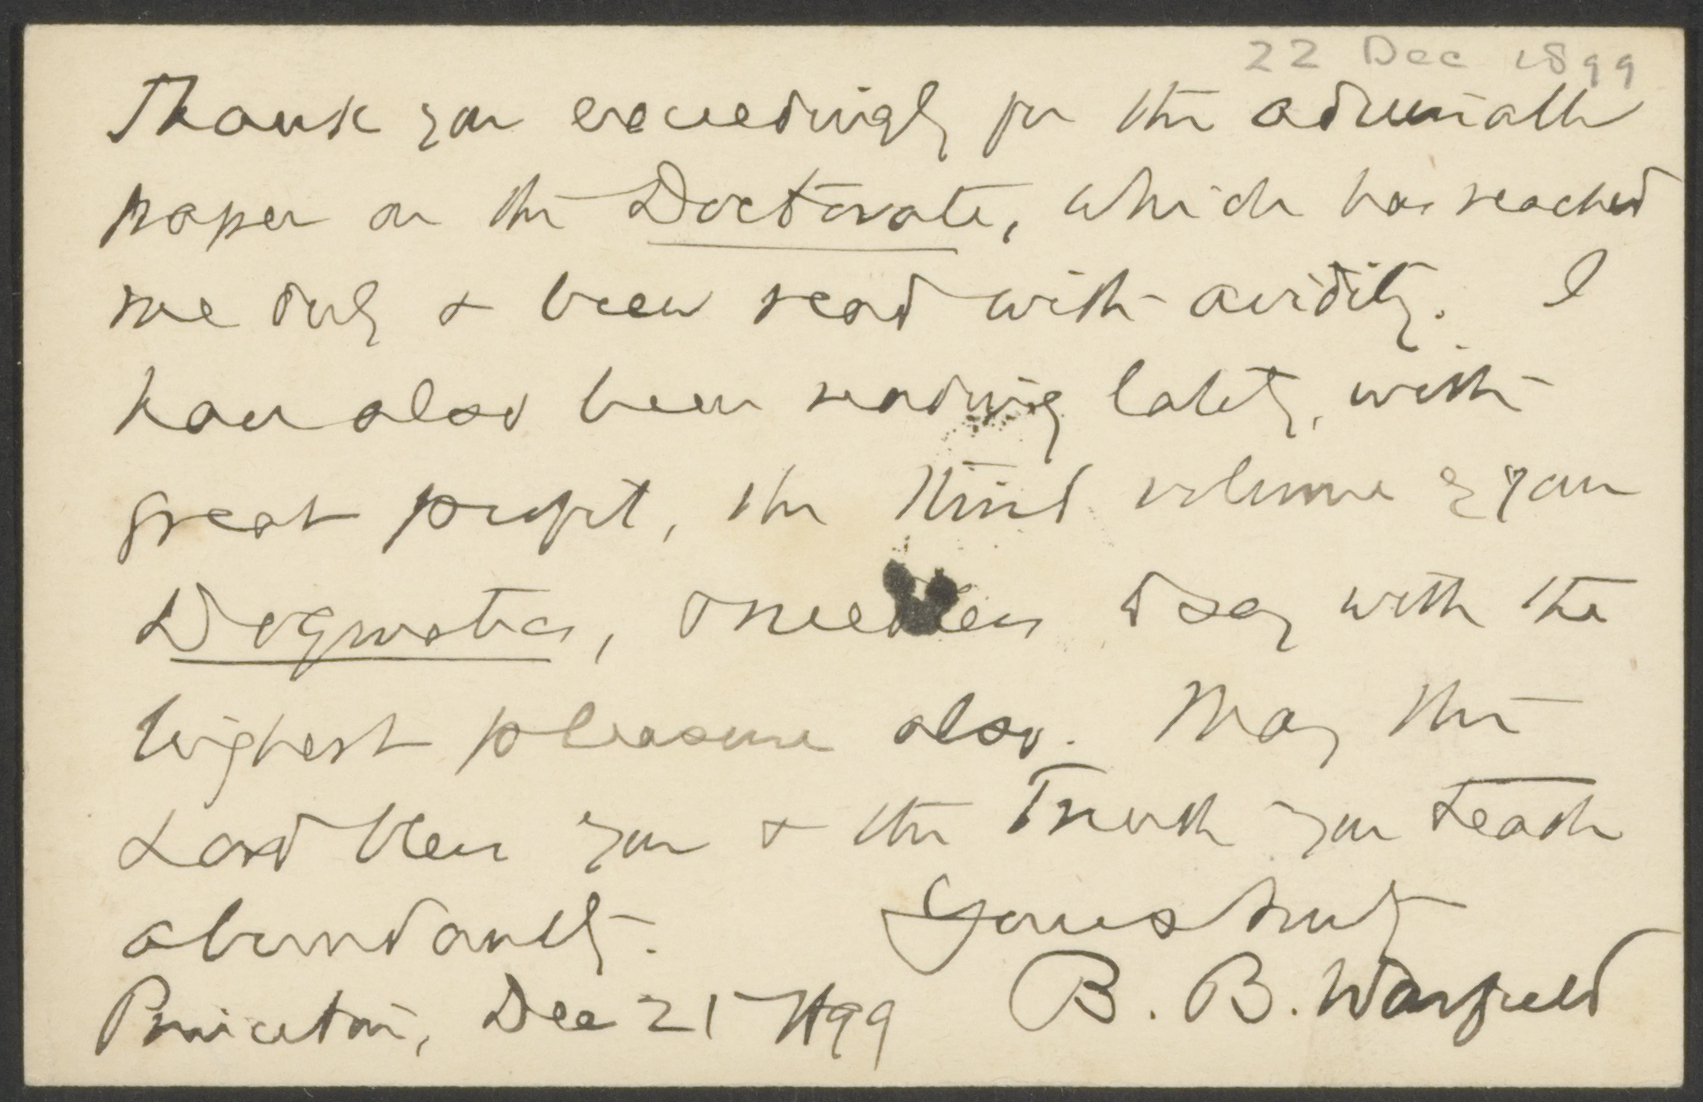 22 Dec 1899
Thank you exceedingly for the admirable
paper on the Doctorate, which has reached
me duly & been read with avidity. I
have also been reading lately, with
great profit, the third volume of your
Dogmatics, & needless to say with the
highest pleasure also. May the
Lord bless you & the Truth you teach
abundantly. Yours truly
Princeton, Dec 21 1899 B. B. Warfield